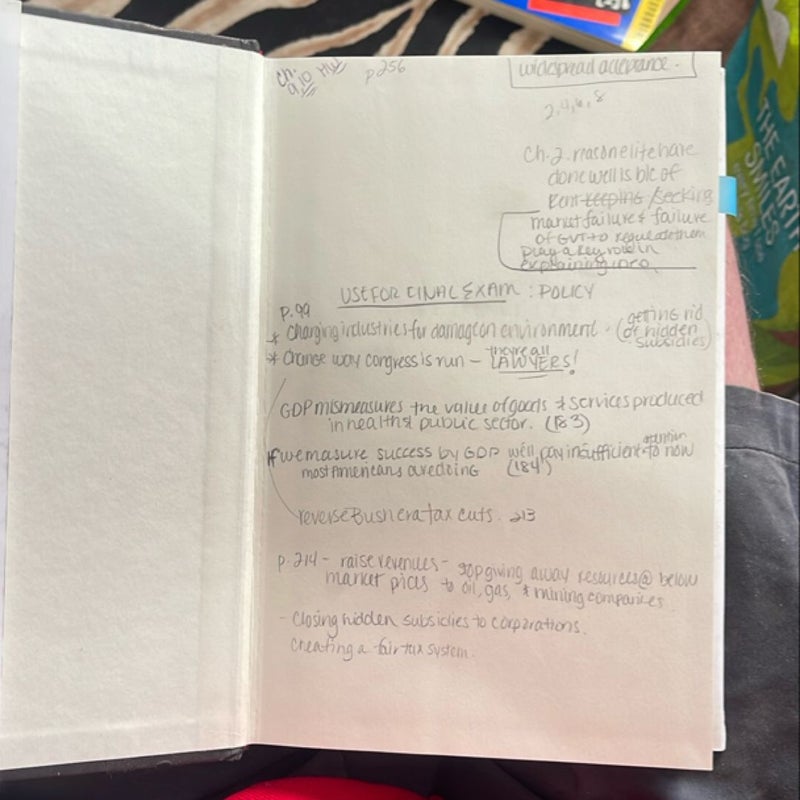 Ch.
9,10 HW
p.256
widespread acceptance.
2,4,6,8
Ch.2. reason elite have
done well is b/c of
Rent-keeping/seeking
market failure & failure
of GVT to regulate them
play a key role in
explaining ineq.
USE FOR FINAL EXAM : POLICY
p.99
* Charging industries for damage on environment. (getting rid
of hidden
subsidies)
* Change way congress is run - they're all
LAWYERS!
GDP mismeasures the value of goods & services produced
in health & public sector. (183)
If we measure success by GDP we'll pay insufficient attention to how
most Americans are doing (184)
reverse Bush era tax cuts. 213
p. 214 - raise revenues - stop giving away resources @ below
market prices to oil, gas, & mining companies.
- Closing hidden subsidies to corporations.
Creating a fair tax system.
THE EARTH
SMILES